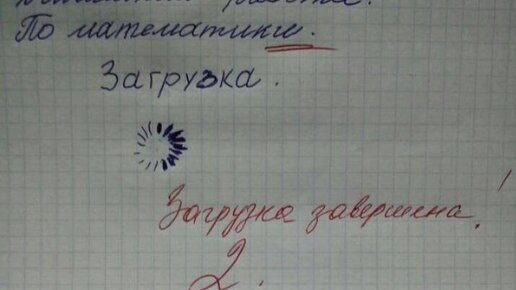 работа.
По математики.
Загрузка.
Загрузка завершена!
2.